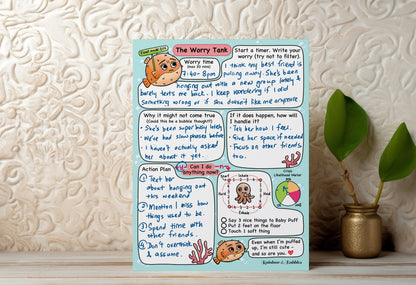 The Worry Tank
Worry time
(max 20 mins)
7:40 - 8pm
Start a timer. Write your
worry (try not to filter).
I think my best friend is
pulling away. She's been
hanging out with a new group lately &
barely texts me back. I keep wondering if I did
something wrong or if she doesn't like me anymore
Why it might not come true
(Could this be a bubble thought?)
- She's been super busy lately
- We've had slow phases before
- I haven't actually asked
her about it yet.
If it does happen, how will
I handle it?
- Tell her how I feel.
- Give her space if needed
- Focus on other friends,
too.
Action Plan
① Text her
about hanging out
this weekend
② Mention I miss how
things used to be.
③ Spend time with
other friends.
④ Don't overthink
& assume.
Can I do
anything now?
Inhale
Exhale
Crisis
Likelihood Meter
Say 3 nice things to Baby Puff
Put 2 feet on the floor
Touch 1 soft thing
Even when I'm puffed
up, I'm still cute -
and so are you.
Rainbow & Bubbles